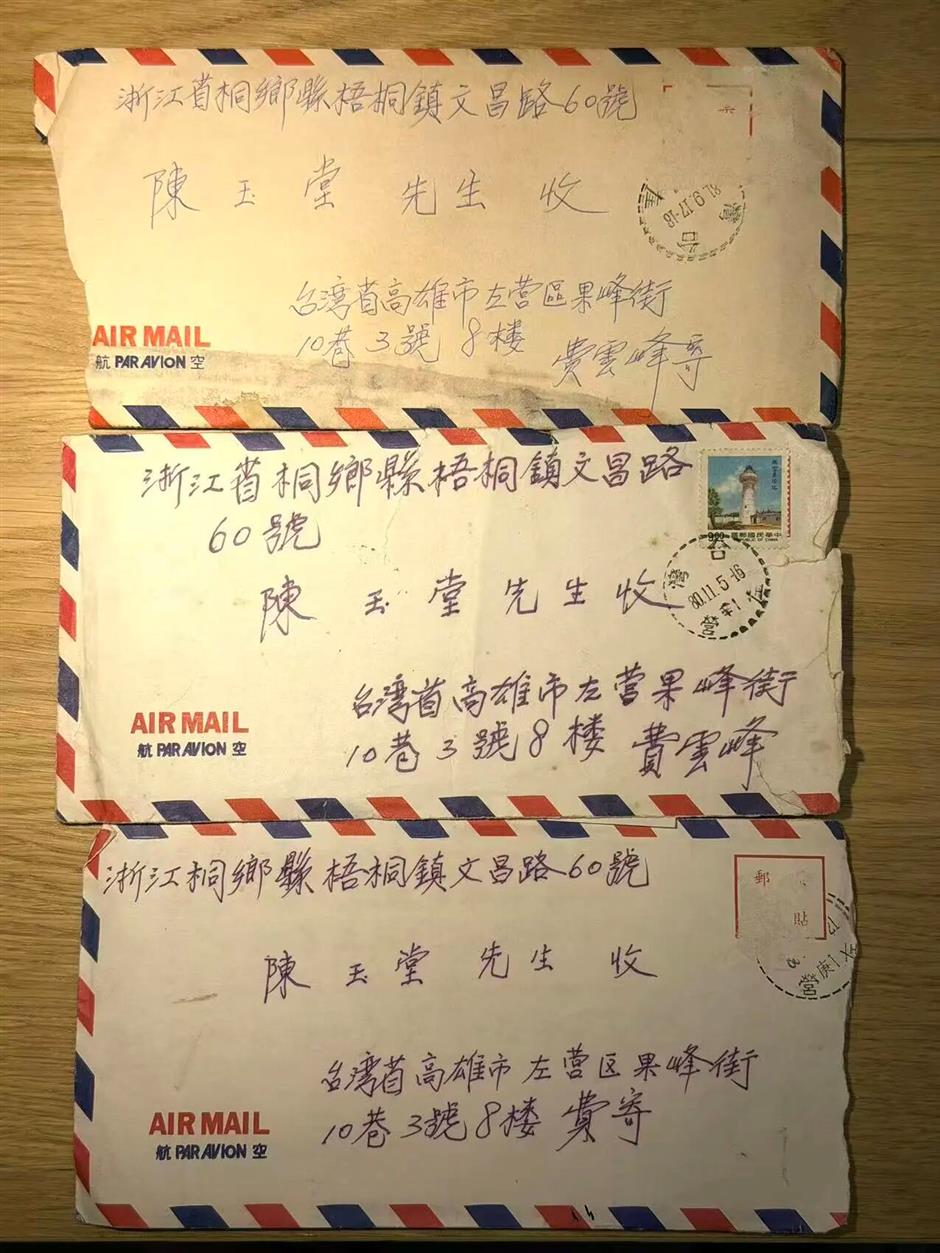 浙江省桐鄉縣梧桐鎮文昌路60號
陳玉堂先生收
台湾省高雄市左营區果峰街
10巷3號8楼 費雲峰寄
AIR MAIL
航 PAR AVION 空
票
81.9.17-18
台灣
浙江省桐鄉縣梧桐鎮文昌路
60號
陳玉堂先生收
台湾省高雄市左营果峰街
10巷3號8楼 費雲峰
AIR MAIL
航 PAR AVION 空
9.00 中華民國郵票
REPUBLIC OF CHINA
台灣
80.11.5-16
左營
浙江桐鄉縣梧桐鎮文昌路60號
陳玉堂先生收
台湾省高雄市左营区果峰街
10巷3號8楼 費寄
AIR MAIL
航 PAR AVION 空
郵
貼
左營